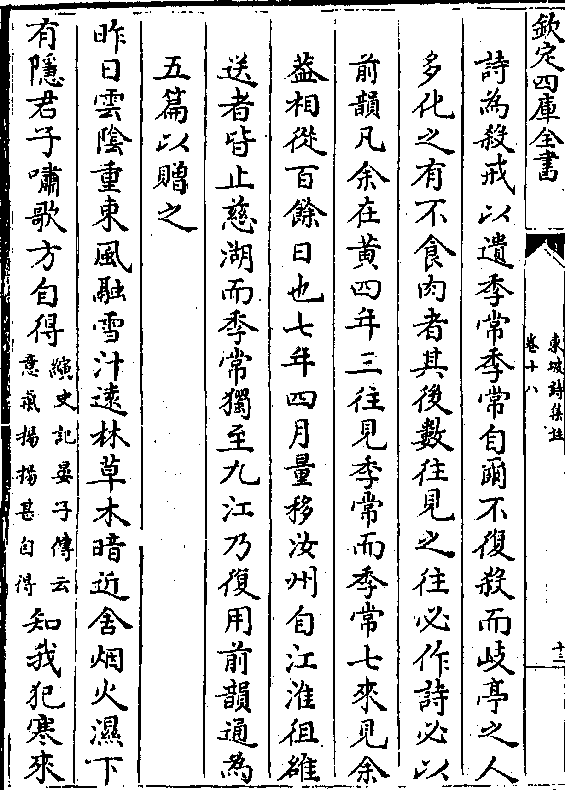 欽定四庫全書
東坡詩集註
卷十八
十三
詩為殺戒以遺季常季常自爾不復殺而岐亭之人
多化之有不食肉者其後數往見之往必作詩必以
前韻凡余在黄四年三往見季常而季常七來見余
葢相從百餘日也七年四月量移汝州自江淮徂雒
送者皆止慈湖而季常獨至九江乃復用前韻通為
五篇以贈之
昨日雲陰重東風融雪汁遠林草木暗近舍烟火濕下
有隱君子嘯歌方自得
縯史記晏子傳云
意氣揚揚甚自得
知我犯寒來